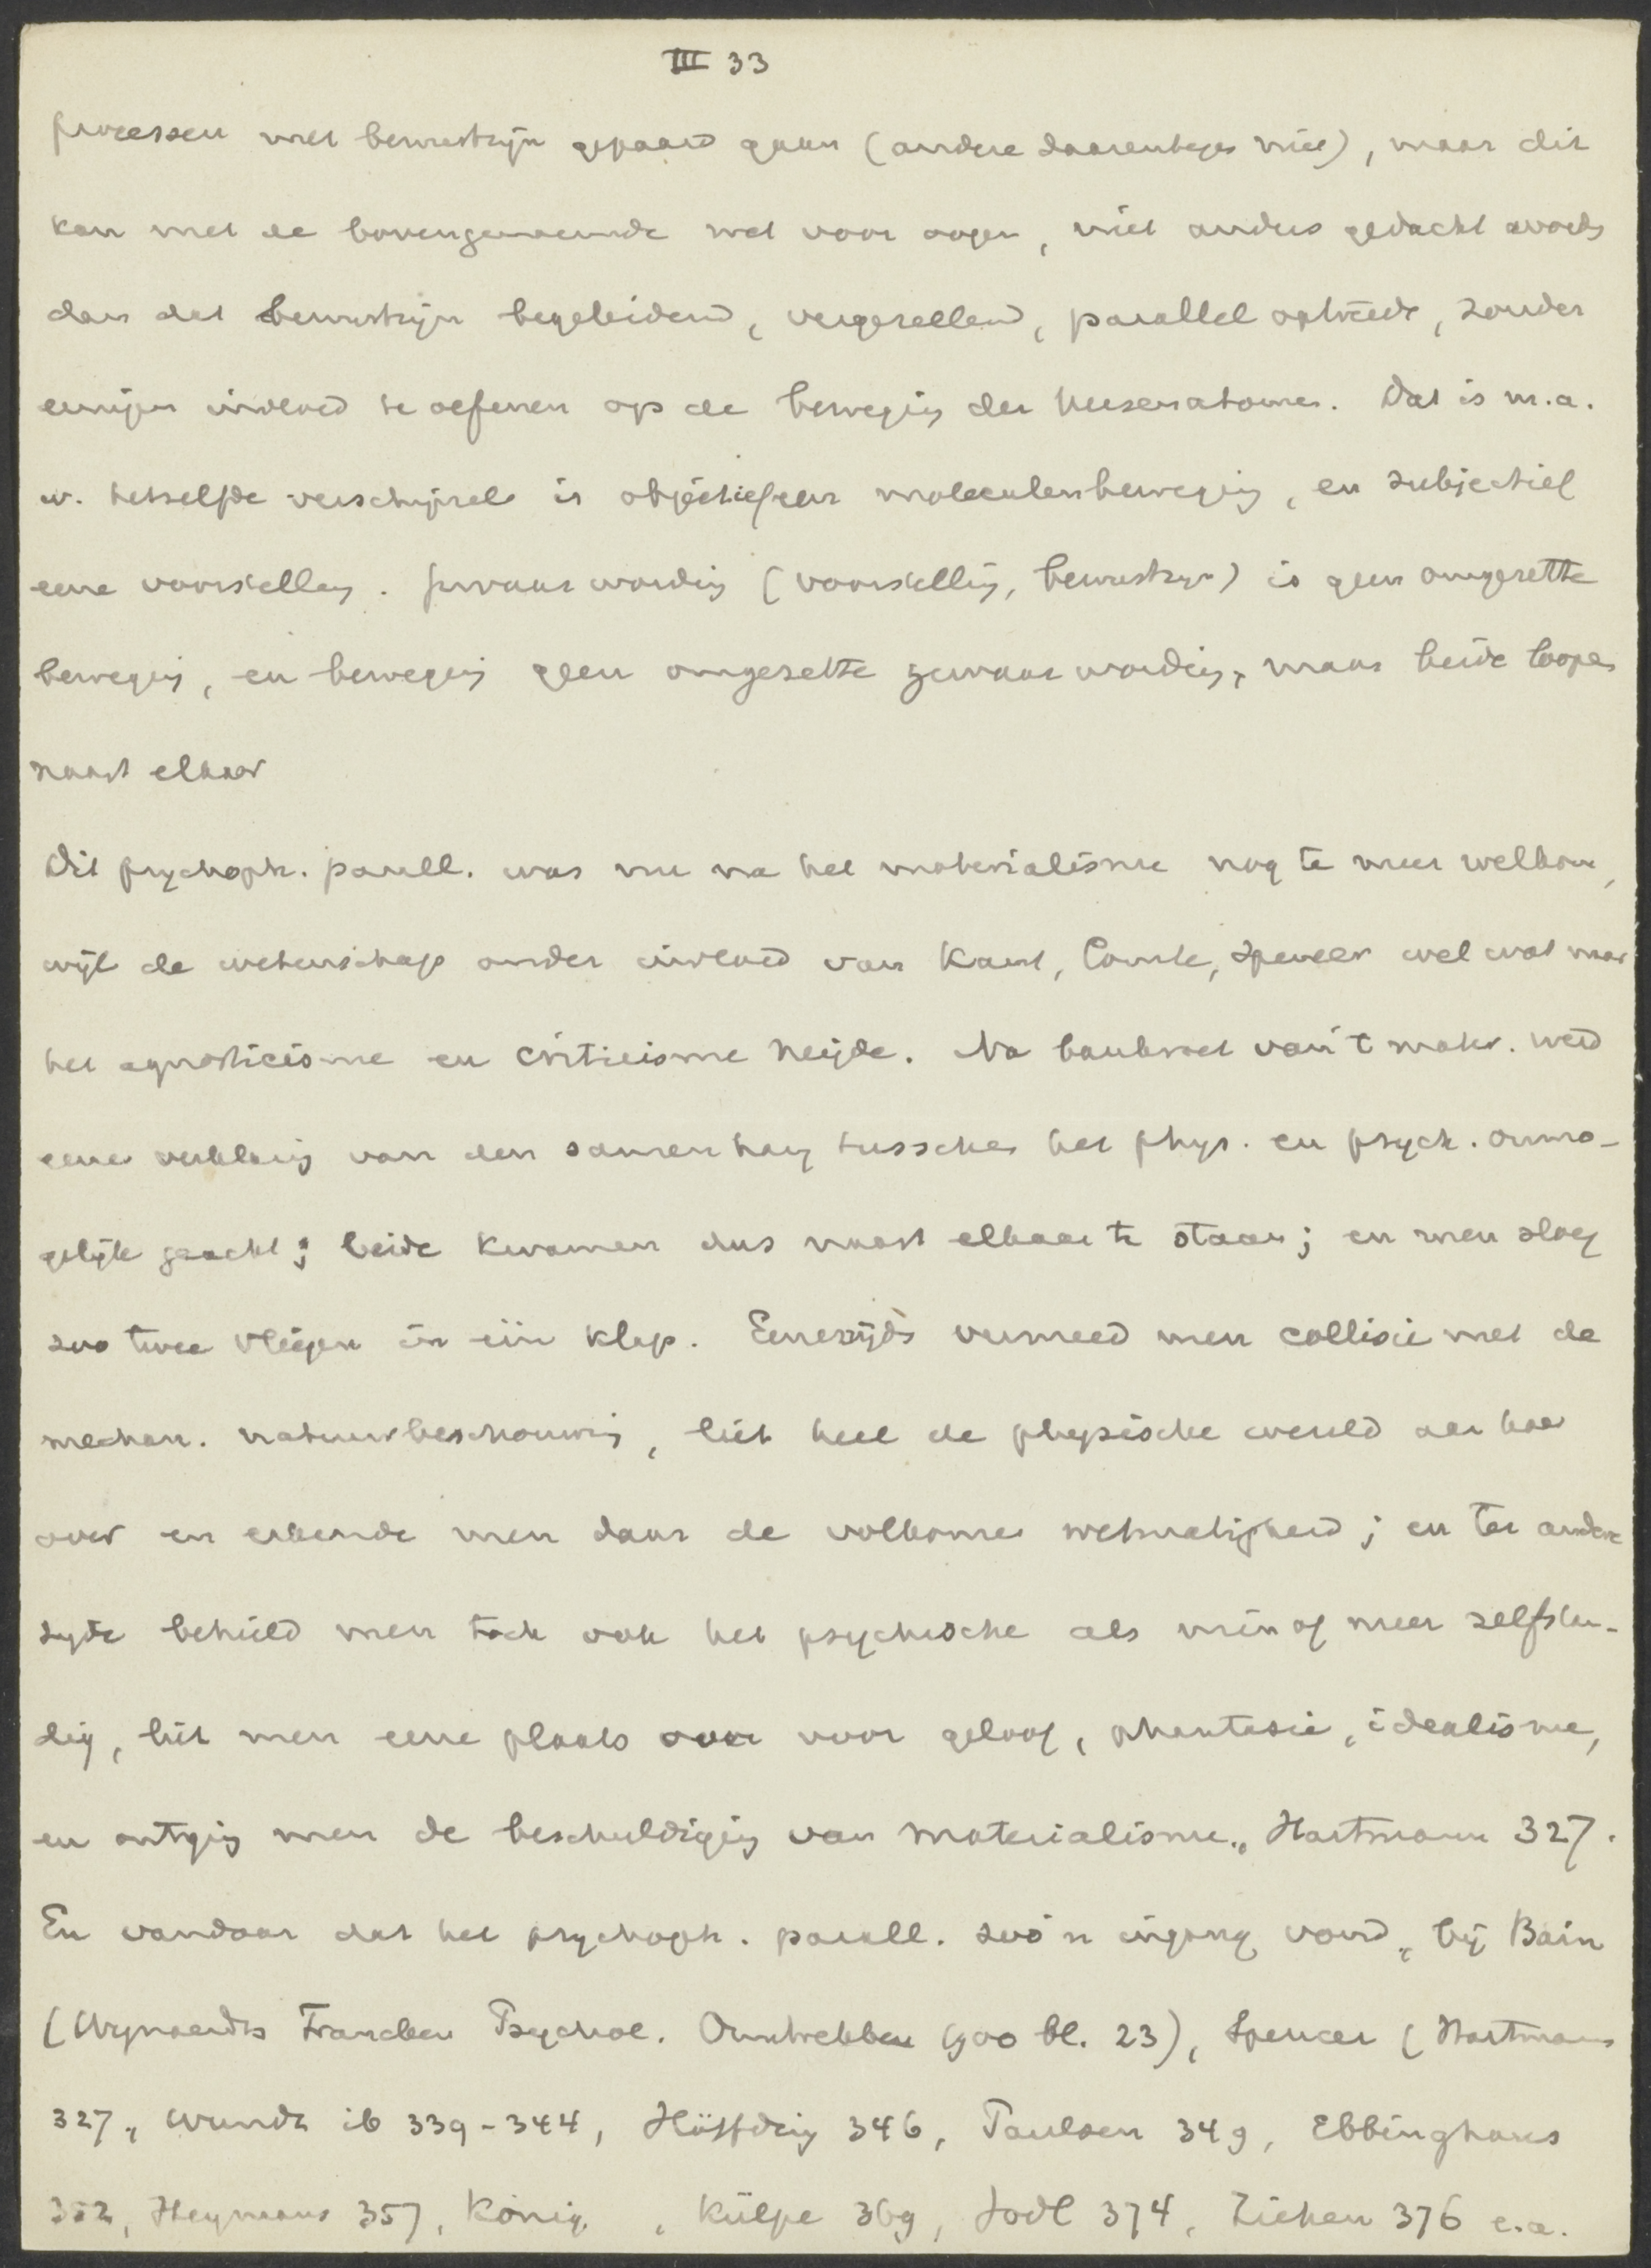 III 33
processen met bewustzijn gepaard gaan (andere daarentegen niet), maar dit
kan met de bovengenoemde wet voor oogen, niet anders gedacht worden
dan dat bewustzijn begeleidend, vergezellend, parallel optreedt, zonder
eenigen invloed te oefenen op de beweging der hersenatomen. Dat is m.a.
w. hetzelfde verschijnsel is objectief een moleculenbeweging, en subjectief
eene voorstelling. Gewaarwording (voorstelling, bewustzijn) is geen omgezette
beweging, en beweging geen omgezette gewaarwording, maar beide loopen
naast elkaar
Dit psychoph. parall. was nu na het materialisme nog te meer welkom,
wijl de wetenschap onder invloed van Kant, Comte, Spencer wel wat naar
het agnosticisme en criticisme neigde. Na bankroet van 't mater. werd
eene verklaring van den samenhang tusschen het phys. en psych. onmo-
gelijk geacht; beide kwamen dus naast elkaar te staan; en men sloeg
zoo twee vliegen in één klap. Eenerzijds vermeed men collisie met de
mechan. natuurbeschouwing, liet heel de physische wereld aan haar
over en erkende men daar de volkomen wetmatigheid; en ter andere
zyde behield men toch ook het psychische als min of meer zelfstan-
dig, liet men eene plaats over voor geloof, phantasie, idealisme,
en ontging men de beschuldiging van materialisme, Hartmann 327.
En vandaar dat het psychoph. parall. zoo'n ingang vond, bij Bain
(Wynaendts Francken Psychol. Omtrekken 1900 bl. 23), Spencer (Hartmann
327, Wundt ib 339-344, Höffding 346, Paulsen 349, Ebbinghaus
352, Heymans 357, König , Külpe 369, Jodl 374, Ziehen 376 e.a.